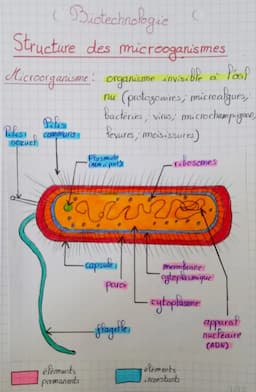 ( Biotechnologie )
Structure des microoganismes
Microorganisme : organisme invisible à l'œil
nu (protozoaires, microalgues,
bactéries, virus, microchampignons,
levures, moisissures)
Pilis
communs
Pilis
sexuel
Plasmide
ribosomes
capsule
paroi
membrane
cytoplasmique
cytoplasme
flagelle
appareil
nucléaire
(ADN)
éléments
permanents
éléments
inconstants